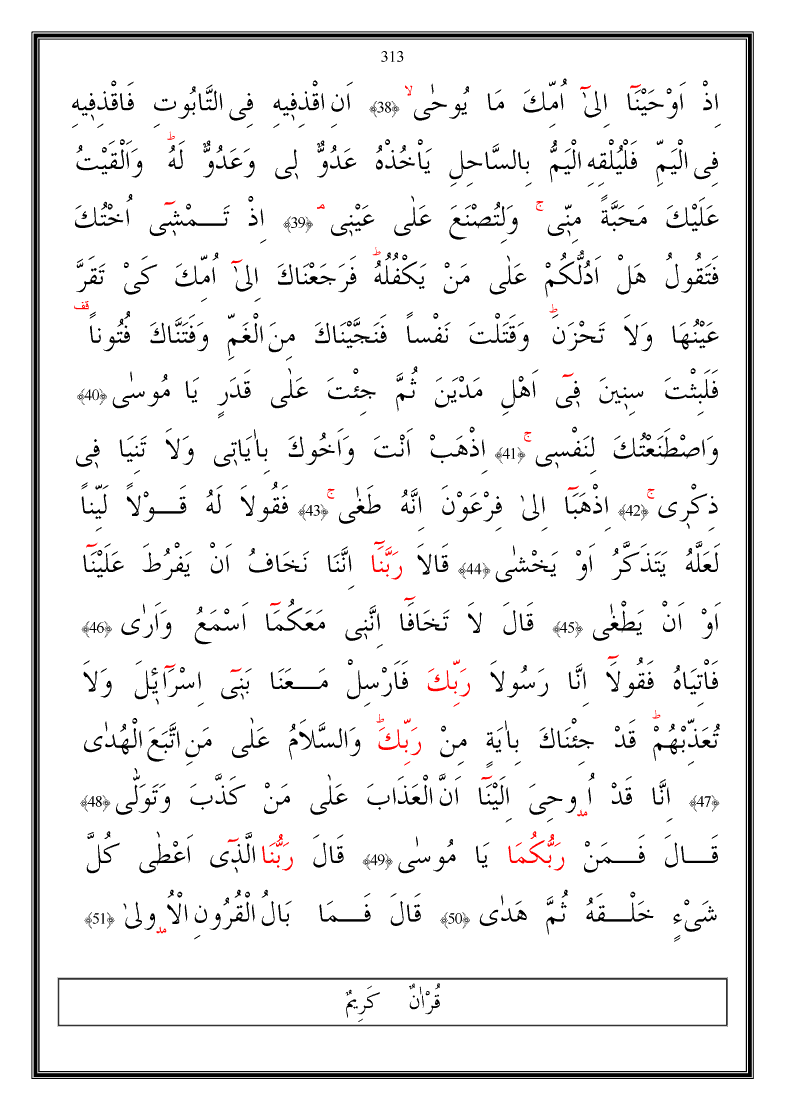 313
اِذْ اَوْحَيْنَٓا اِلىٰٓ اُمِّكَ مَا يُوحٰىۙ ﴿38﴾ اَنِ اقْذِفٖيهِ فِى التَّابُوتِ فَاقْذِفٖيهِ
فِى الْيَمِّ فَلْيُلْقِهِ الْيَمُّ بِالسَّاحِلِ يَاْخُذْهُ عَدُوٌّ لٖى وَعَدُوٌّ لَهُؕ وَاَلْقَيْتُ
عَلَيْكَ مَحَبَّةً مِنّٖىۚ وَلِتُصْنَعَ عَلٰى عَيْنٖىۘ ﴿39﴾ اِذْ تَـــمْشٖٓى اُخْتُكَ
فَتَقُولُ هَلْ اَدُلُّكُمْ عَلٰى مَنْ يَكْفُلُهُؕ فَرَجَعْنَاكَ اِلىٰٓ اُمِّكَ كَىْ تَقَرَّ
عَيْنُهَا وَلاَ تَحْزَنَؕ وَقَتَلْتَ نَفْساً فَنَجَّيْنَاكَ مِنَ الْغَمِّ وَفَتَنَّاكَ فُتُوناًقف
فَلَبِثْتَ سِنٖينَ فٖٓى اَهْلِ مَدْيَنَ ثُمَّ جِئْتَ عَلٰى قَدَرٍ يَا مُوسٰى ﴿40﴾
وَاصْطَنَعْتُكَ لِنَفْسٖىۚ ﴿41﴾ اِذْهَبْ اَنْتَ وَاَخُوكَ بِاٰيَاتٖى وَلاَ تَنِيَا فٖى
ذِكْرٖىۚ ﴿42﴾ اِذْهَبَٓا اِلىٰ فِرْعَوْنَ اِنَّهُ طَغٰىۚ ﴿43﴾ فَقُولاَ لَهُ قَـــوْلاً لَيِّناً
لَعَلَّهُ يَتَذَكَّرُ اَوْ يَخْشٰى ﴿44﴾ قَالاَ رَبَّنَٓا اِنَّنَا نَخَافُ اَنْ يَفْرُطَ عَلَيْنَٓا
اَوْ اَنْ يَطْغٰى ﴿45﴾ قَالَ لاَ تَخَافَٓا اِنَّنٖى مَعَكُمَٓا اَسْمَعُ وَاَرٰى ﴿46﴾
فَاْتِيَاهُ فَقُولآَ اِنَّا رَسُولاَ رَبِّكَ فَاَرْسِلْ مَـــعَنَا بَنٖٓى اِسْرَٓائٖلَ وَلاَ
تُعَذِّبْهُمْؕ قَدْ جِئْنَاكَ بِاٰيَةٍ مِنْ رَبِّكَؕ وَالسَّلاَمُ عَلٰى مَنِ اتَّبَعَ الْهُدٰى
﴿47﴾ اِنَّا قَدْ اُوحِىَ اِلَيْنَٓا اَنَّ الْعَذَابَ عَلٰى مَنْ كَذَّبَ وَتَوَلّٰى ﴿48﴾
قَـــالَ فَـــمَنْ رَبُّكُمَا يَا مُوسٰى ﴿49﴾ قَالَ رَبُّنَا الَّذٖٓى اَعْطٰى كُلَّ
شَىْءٍ خَلْـــقَهُ ثُمَّ هَدٰى ﴿50﴾ قَالَ فَـــمَا بَالُ الْقُرُونِ الْاُولىٰ ﴿51﴾
قُرْاٰنٌ كَرِيمٌ